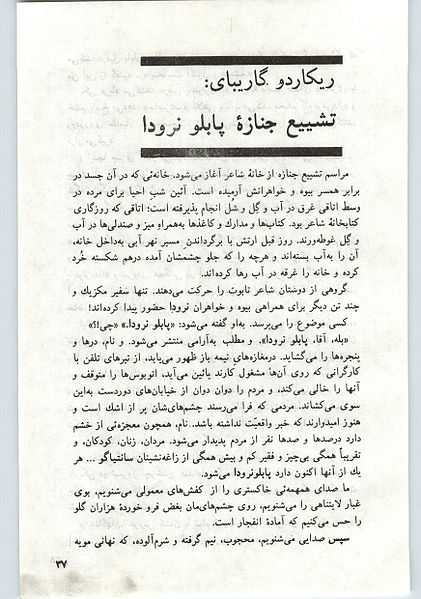 ریکاردو گاریبای:
تشییع جنازهٔ پابلو نرودا
مراسم تشییع جنازه از خانهٔ شاعر آغاز می‌شود. خانه‌ئی که در آن جسد در
برابر همسر بیوه و خواهرانش آرمیده است. آئین شب احیا برای مرده در
وسط اتاقی غرق در آب و گِل و شُل انجام پذیرفته است؛ اتاقی که روزگاری
کتابخانهٔ شاعر بود. کتاب‌ها و مدارك و کاغذها به‌همراهِ میز و صندلی‌ها در آب
و گِل غوطه‌ورند. روز قبل ارتش با برگرداندن مسیر نهر آبی به‌داخل خانه،
آن را به‌آب بسته‌اند و هرچه را که جلو چشمشان آمده درهم شکسته خُرد
کرده و خانه را غرقه در آب رها کرده‌اند.
گروهی از دوستان شاعر تابوت را حرکت می‌دهند. تنها سفیر مکزیك و
چند تن دیگر برای همراهی بیوه و خواهران نرودا حضور پیدا کرده‌اند!
کسی موضوع را می‌پرسد. به‌او گفته می‌شود: «پابلو نرودا.» «چی!؟»
«بله، آقا، پابلو نرودا». و مطلب به‌آرامی منتشر می‌شود. و نام، درها و
پنجره‌ها را می‌گشاید. درمغازه‌های نیمه باز ظهور می‌یابد، از تیرهای تلفن با
کارگرانی که روی آن‌ها مشغول کارند پائین می‌آید، اتوبوس‌ها را متوقف و
آنها را خالی می‌کند، و مردم را دوان دوان از خیابان‌های دوردست به‌این
سوی می‌کشاند. مردمی که فرا می‌رسند چشم‌های‌شان پر از اشك است و
هنوز امیدوارند که خبر واقعیّت نداشته باشد. نام، همچون معجزه‌ئی از خشم
دارد درصدها و صدها نفر از مردم پدیدار می‌شود. مردان، زنان، کودکان، و
تقریباً همگی بی‌چیز و فقیر کم و بیش همگی از زاغه‌نشینان سانتیاگو ... هر
یك از آنها اکنون دارد پابلونرودا می‌شود.
ما صدای همهمه‌ئی خاکستری را از کفش‌های معمولی می‌شنویم، بوی
غبار لایتناهی را می‌شنویم، روی چشم‌های‌مان بغض فرو خوردهٔ هزاران گلو
را حس می‌کنیم که آمادهٔ انفجار است.
سپس صدایی می‌شنویم، محجوب، نیم گرفته و شرم‌آلوده، که نهانی مویه
۳۷